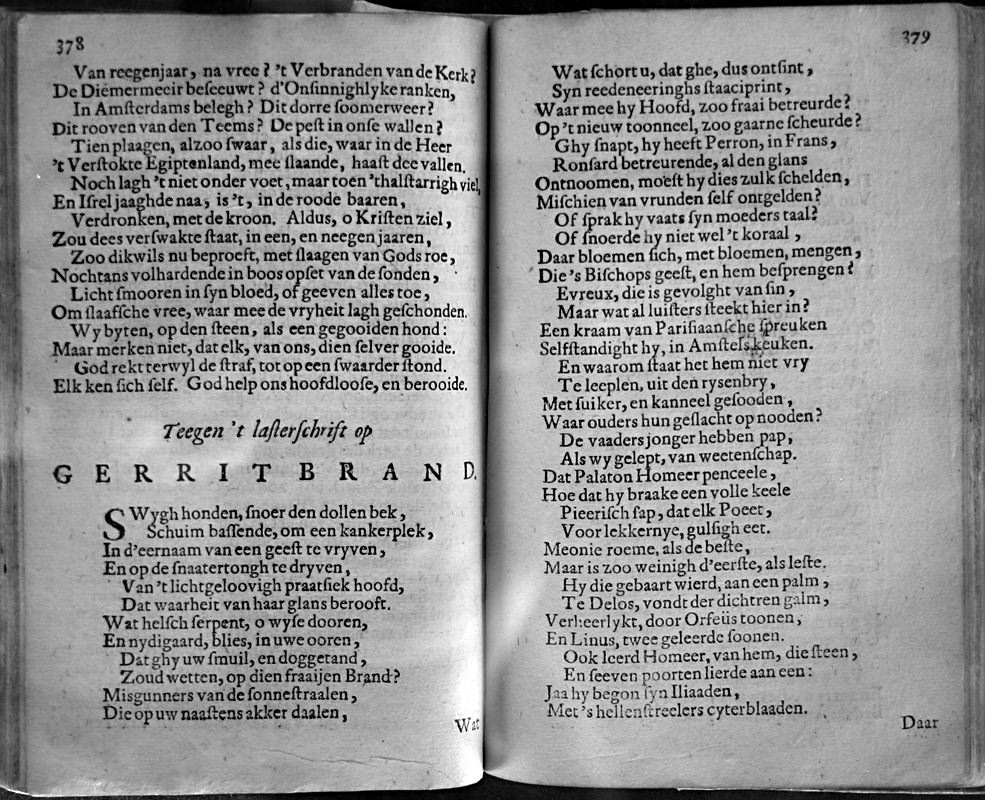 378
Van reegenjaar, na vree? 't Verbranden van de Kerk?
De Diemermeeir beſeeuwt? d'Onſinnighlyke ranken,
In Amſterdams belegh? Dit dorre ſoomerweer?
Dit rooven van den Teems? De peſt in onſe wallen?
Tien plaagen, alzoo ſwaar, als die, waar in de Heer
't Verſtokte Egiptenland, mee ſlaande, haaſt dee vallen.
Noch lagh 't niet onder voet, maar toen 'thalſtarrigh viel,
En Iſrel jaaghde naa, is 't, in de roode baaren,
Verdronken, met de kroon. Aldus, o Kriſten ziel,
Zou dees verſwakte ſtaat, in een, en neegen jaaren,
Zoo dikwils nu beproeft, met ſlaagen van Gods roe,
Nochtans volhardende in boos opſet van de ſonden,
Licht ſmooren in ſyn bloed, of geeven alles toe,
Om ſlaafſche vree, waar mee de vryheit lagh geſchonden.
Wy byten, op den ſteen, als een gegooiden hond:
Maar merken niet, dat elk, van ons, dien ſelver gooide.
God rekt terwyl de ſtraf, tot op een ſwaarder ſtond.
Elk ken ſich ſelf. God help ons hoofdlooſe, en berooide.
Teegen 't laſterſchrift op
GERRIT BRAND.
SWygh honden, ſnoer den dollen bek,
Schuim baſſende, om een kankerplek,
In d'eernaam van een geeſt te vryven,
En op de ſnaatertongh te dryven,
Van 't lichtgeloovigh praatſiek hoofd,
Dat waarheit van haar glans berooft.
Wat helſch ſerpent, o wyſe dooren,
En nydigaard, blies, in uwe ooren,
Dat ghy uw ſmuil, en doggetand,
Zoud wetten, op dien fraaijen Brand?
Misgunners van de ſonneſtraalen,
Die op uw naaſtens akker daalen,
Wat
379
Wat ſchort u, dat ghe, dus ontſint,
Syn reedeneeringhs ſtaaciprint,
Waar mee hy Hoofd, zoo fraai betreurde?
Op 't nieuw toonneel, zoo gaarne ſcheurde?
Ghy ſnapt, hy heeft Perron, in Frans,
Ronſard betreurende, al den glans
Ontnoomen, moeſt hy dies zulk ſchelden,
Miſchien van vrunden ſelf ontgelden?
Of ſprak hy vaats ſyn moeders taal?
Of ſnoerde hy niet wel 't koraal,
Daar bloemen ſich, met bloemen, mengen,
Die 's Biſchops geeſt, en hem beſprengen?
Evreux, die is gevolght van ſin,
Maar wat al luiſters ſteekt hier in?
Een kraam van Pariſiaanſche ſpreuken
Selfſtandight hy, in Amſtels keuken.
En waarom ſtaat het hem niet vry
Te leeplen, uit den rysenbry,
Met ſuiker, en kanneel geſooden,
Waar ouders hun geſlacht op nooden?
De vaaders jonger hebben pap,
Als wy gelept, van weetenſchap.
Dat Palaton Homeer penceele,
Hoe dat hy braake een volle keele
Pieeriſch ſap, dat elk Poeet,
Voor lekkernye, gulſigh eet.
Meonie roeme, als de beſte,
Maar is zoo weinigh d'eerſte, als leſte.
Hy die gebaart wierd, aan een palm,
Te Delos, vondt der dichtren galm,
Verheerlykt, door Orfeüs toonen,
En Linus, twee geleerde ſoonen.
Ook leerd Homeer, van hem, die ſteen,
En ſeeven poorten lierde aan een:
Jaa hy begon ſyn Iliaaden,
Met 's hellenſtreelers cyterblaaden.
Daar